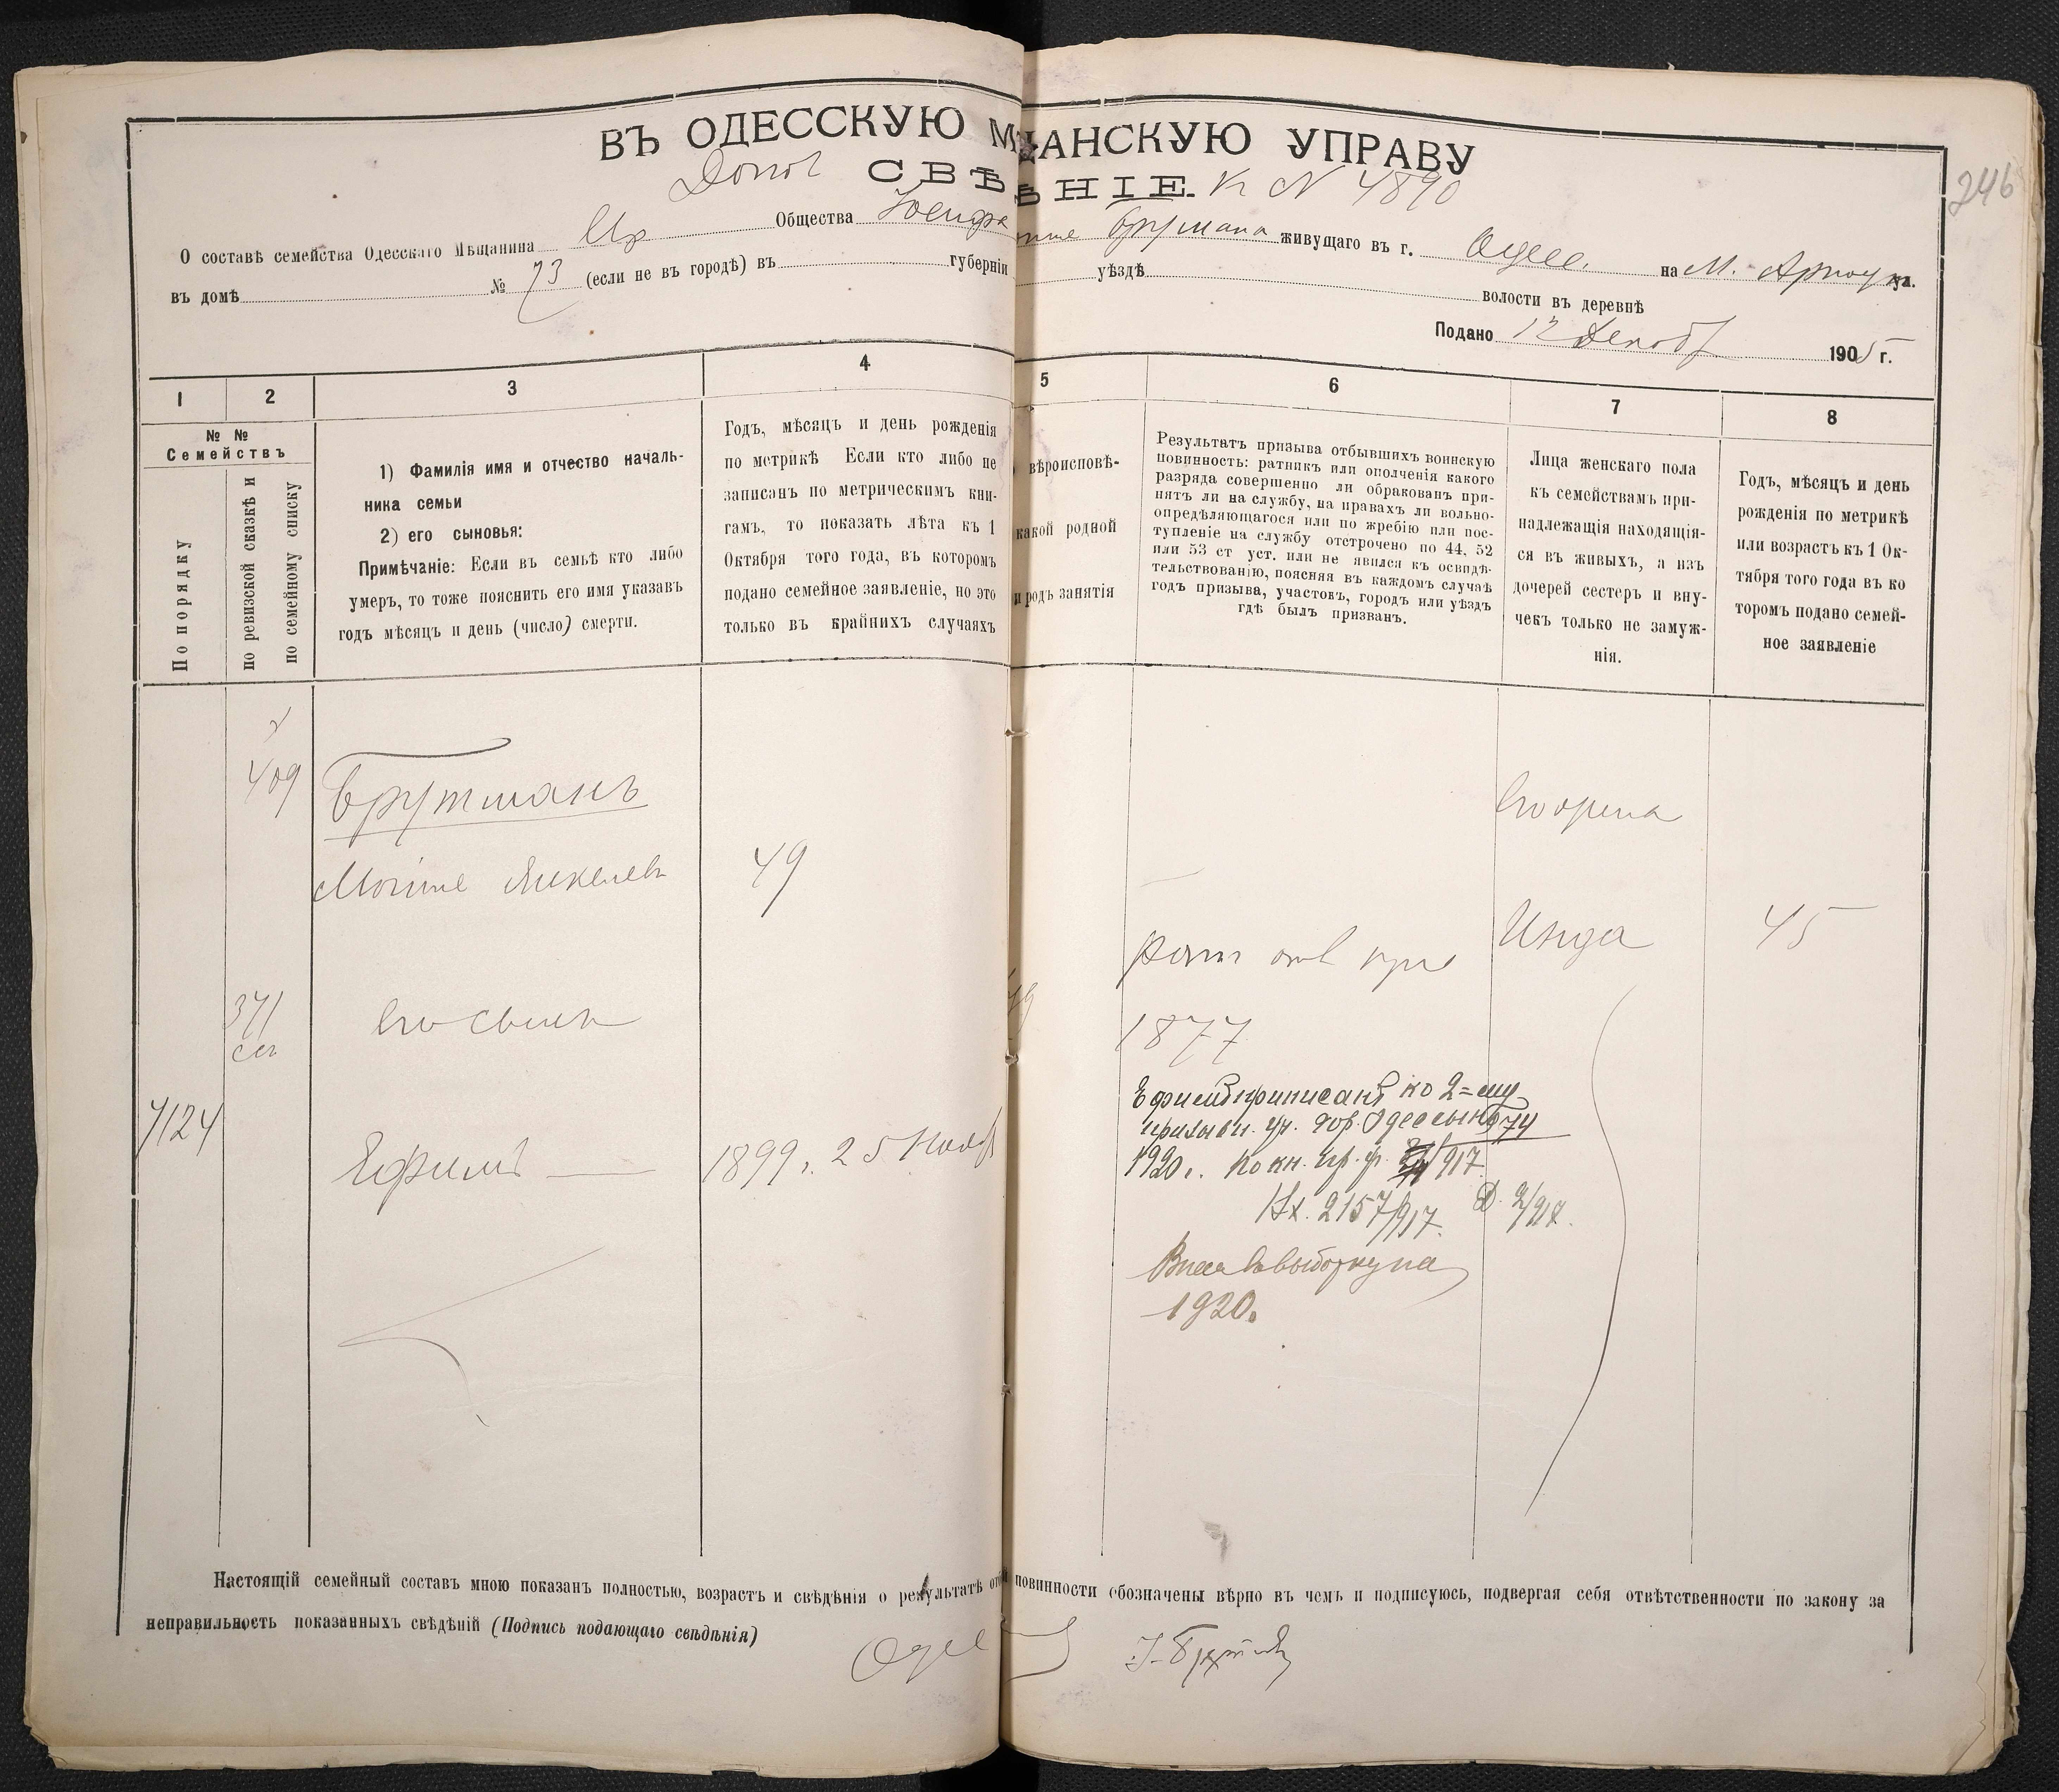 ВЪ ОДЕССКУЮ М ЩАНСКУЮ УПРАВУ
246
СВѢ ѢНІЕ. К № 4890
О составѣ семейства Одесскаго Мѣщанина Общества Бруmана живущаго въ г. Одесс. на М. Арноу ул.
въ домѣ № 73 (если не въ городѣ) въ губерніи уѣздѣ волости въ деревнѣ
Подано 12 Декабр 1905 г.
1 2 3 4 5 6 7 8
№ №
Семействъ
По порядку
по ревизской сказкѣ и
по семейному списку
1) Фамилія имя и отчество началь-
ника семьи
2) его сыновья:
Примѣчаніе: Если въ семьѣ кто либо
умеръ, то тоже пояснить его имя указавъ
годъ мѣсяцъ и день (число) смерти.
Годъ, мѣсяцъ и день рожденія
по метрикѣ Если кто либо не
записанъ по метрическимъ кни-
гамъ, то показать лѣта къ 1
Октября того года, въ которомъ
подано семейное заявленіе, но это
только въ крайнихъ случаяхъ
вѣроисповѣ-
какой родной
и родъ занятія
Результатъ призыва отбывшихъ воинскую
повинность: ратникъ или ополченія какого
разряда совершенно ли обракованъ при-
нятъ ли на службу, на правахъ ли вольно-
опредѣляющагося или по жребію или пос-
тупленіе на службу отсрочено по 44, 52
или 53 ст уст. или не явился къ освидѣ-
тельствованію, поясняя въ каждомъ случаѣ
годъ призыва, участокъ, городъ или уѣздъ
гдѣ былъ призванъ.
Лица женскаго пола
къ семействамъ при-
надлежащія находящія-
ся въ живыхъ, а изъ
дочерей сестеръ и вну-
чекъ только не замуж-
нія.
Годъ, мѣсяцъ и день
рожденія по метрикѣ
или возрастъ къ 1 Ок-
тября того года въ ко
торомъ подано семей-
ное заявленіе
409 Брутманъ
Мойше Янкелев 49
Его жена
Инда 45
371 Его сынъ
1877
7124 Ефимъ 1899 г. 25 Нояб
Ефимъ приписанъ ко 2=му
призывн. уч. гор. Одессы № 974
1920 г. по кн. пр. ф. 917
Вх. 2157/917.
Внес. в выборку на
1920.
Настоящій семейный составъ мною показанъ полностью, возрастъ и свѣдѣнія о результатѣ от повинности обозначены вѣрно въ чемъ и подписуюсь, подвергая себя отвѣтственности по закону за
неправильность показанныхъ свѣдѣній (Подпись подающаго свѣдѣнія)